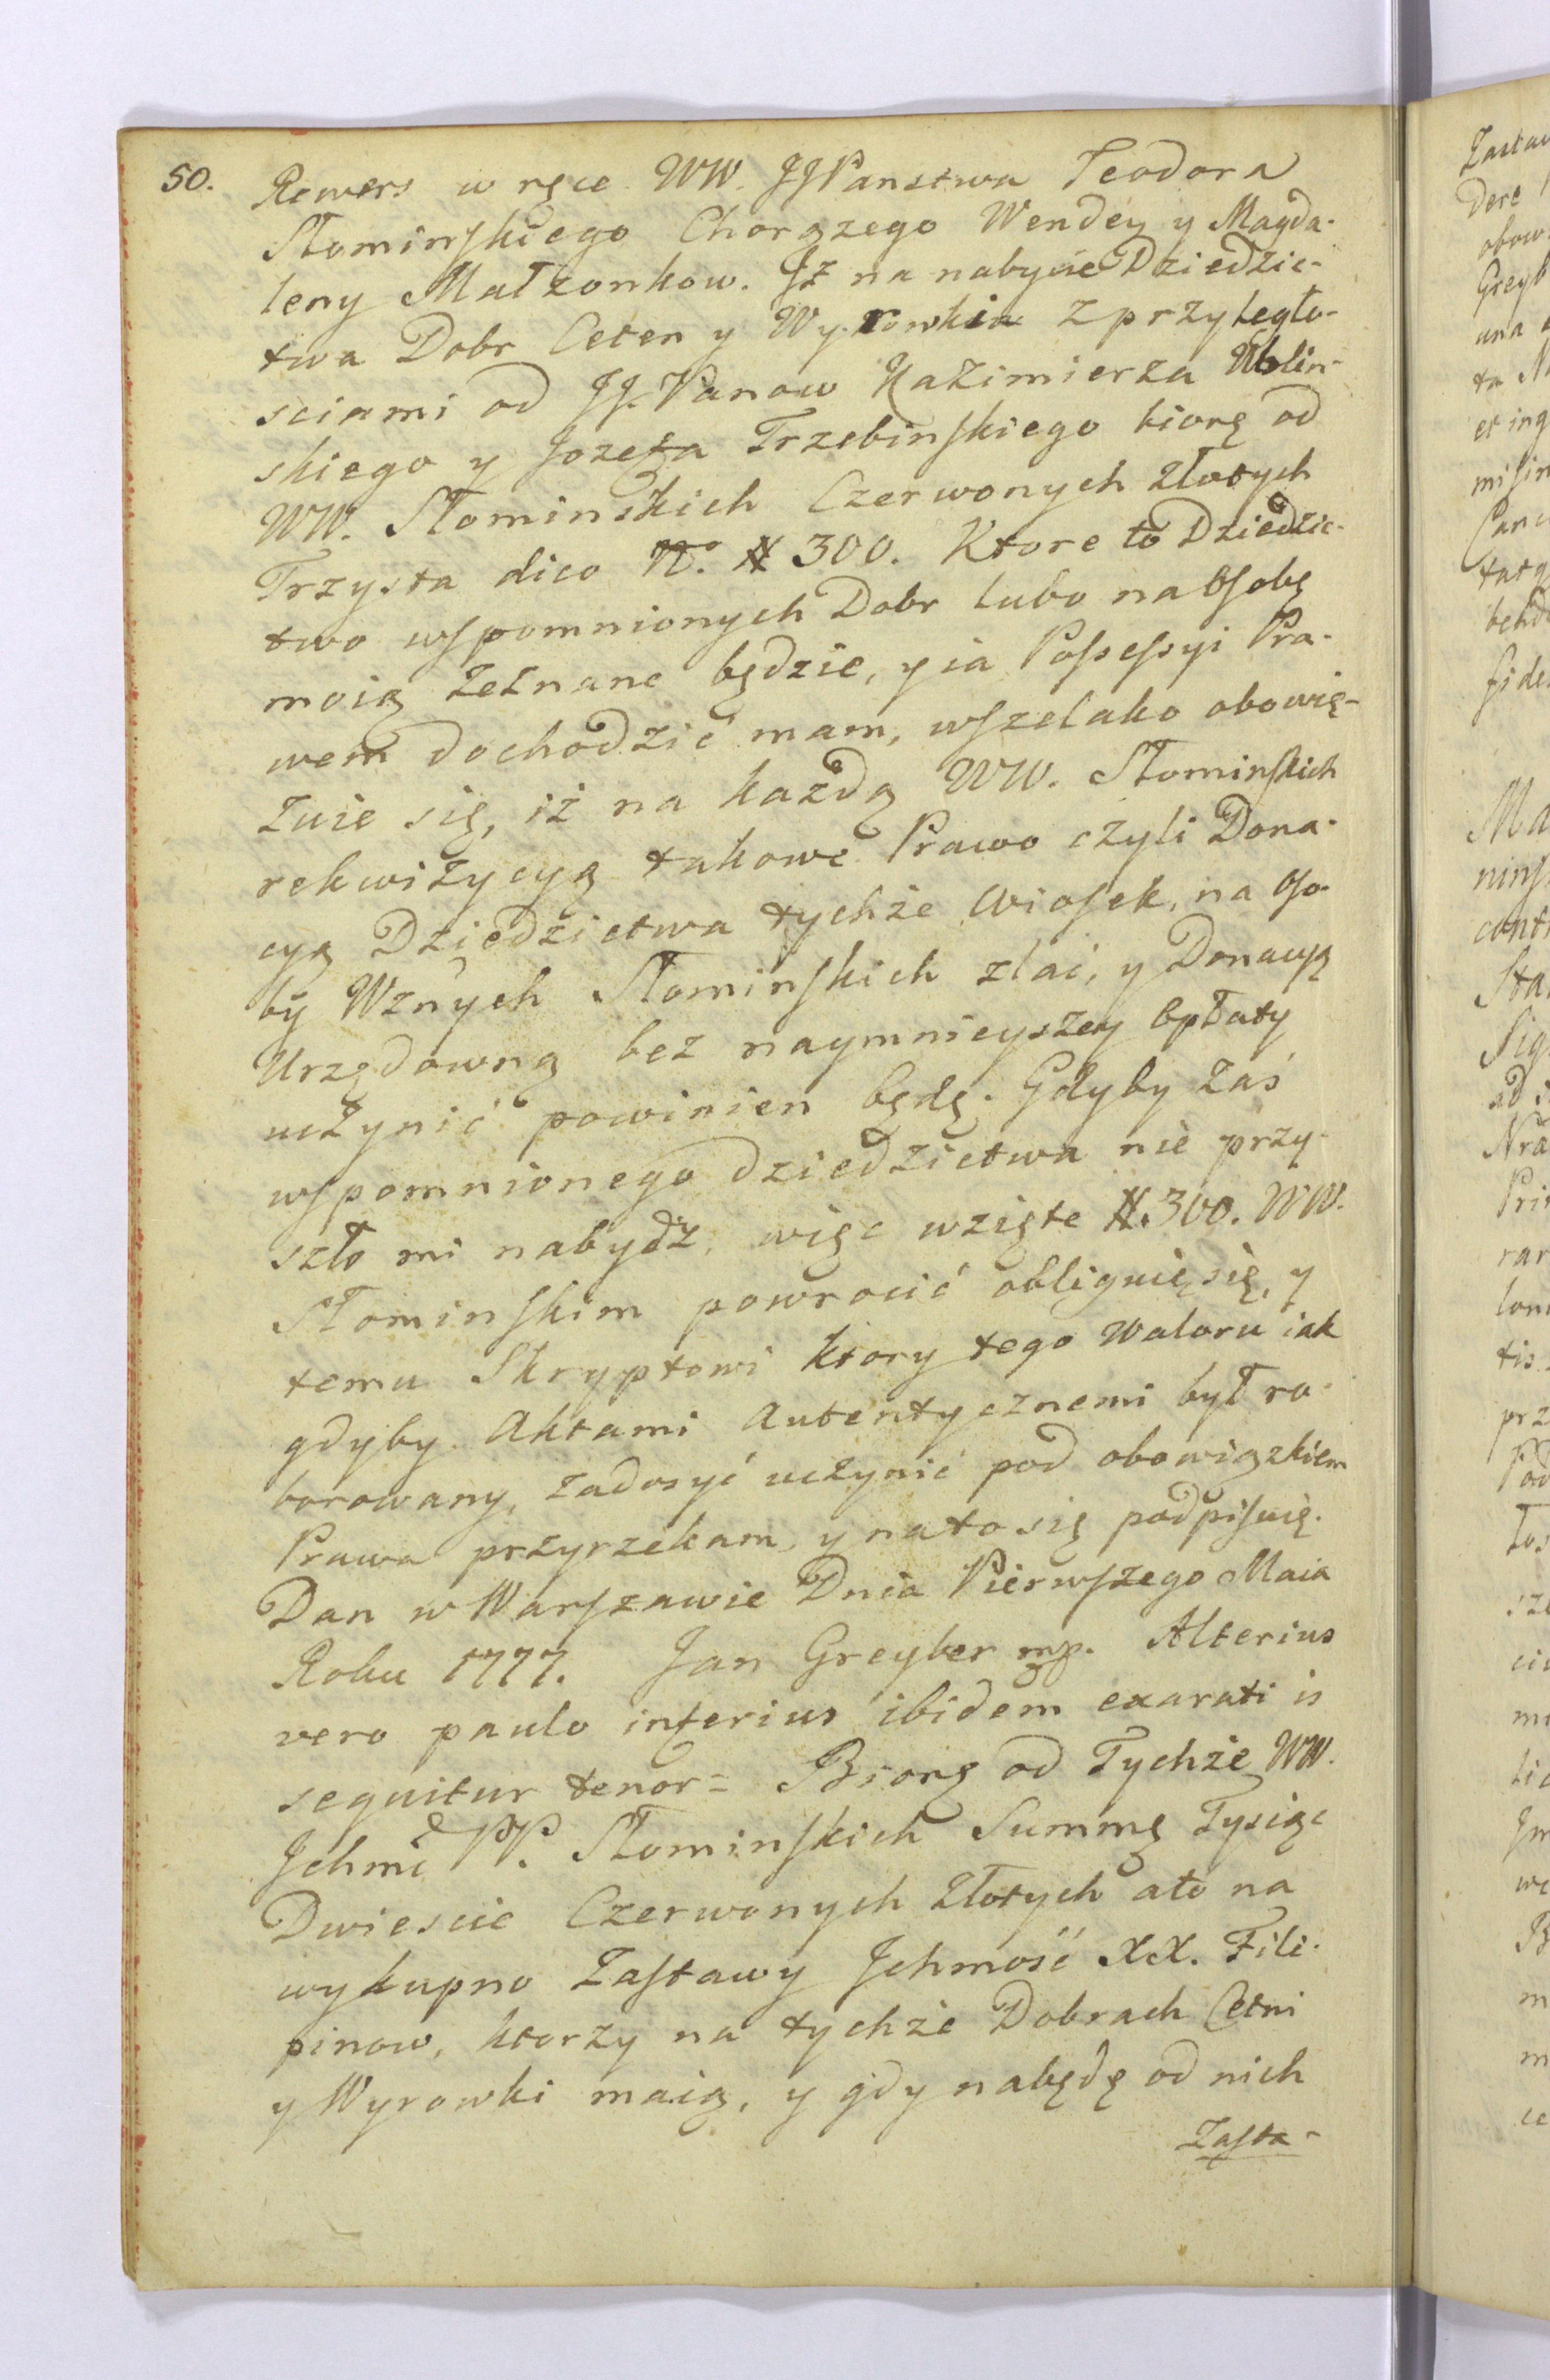 50.
Rewers w ręce WW. JJPanstwa Teodora
Słominskiego Chorązego Wendey y Magda-
leny Małzonkow. Jż na nabycie Dziedzic-
twa Dobr Ceten y Wyrowkia z przyległo-
sciami od JJ. Panow Kazimierza Wolin-
skiego y Jozefa Trzebinskiego biorę od
WW. Słominskich Czerwonych złotych
Trzysta dico No. # 300. Ktore to Dziedzic-
two wspomnionych Dobr lubo na Osobę
moię zeznane będzie, y ia Possessyi Pra-
wem dochodzić mam, wszelako obowię-
zuie się, iż na każdą WW. Słominskich
rekwizycyą takowe Prawo czyli Dona-
cyą Dziedzictwa tychże Wiosek, na Oso-
by Wznych Słominskich zlać, y Donacyą
Urzędowną bez naymnieyszey Opłaty
uczynić powinien będę. Gdyby zaś
wspomnionego dziedzictwa nie przy-
szło mi nabydz, więc wzięte #. 300. WW.
Słominskim powrocić obliguię się, y
temu Skryptowi ktory tego Waloru iak
gdyby Aktami Autentycznemi był ro-
borowany, zadosyć uczynić pod obowiązkiem
Prawa przyrzekam, y na to się podpisuię.
Dan w Warszawie Dnia Pierwszego Maia
Roku 1777. Jan Greyber mp. Alterius
vero paulo inferius ibidem exarati is
sequitur tenor = Biorę od Tychże WW.
Jchmć PP. Słominskich Summę Tysiąc
Dwiescie Czerwonych Złotych ato na
wykupno Zastawy Jchmość XX. Fili-
pinow, ktorzy na tychże Dobrach Cetni
y Wyrowki maią, y gdy nabędę od nich
Zasta-